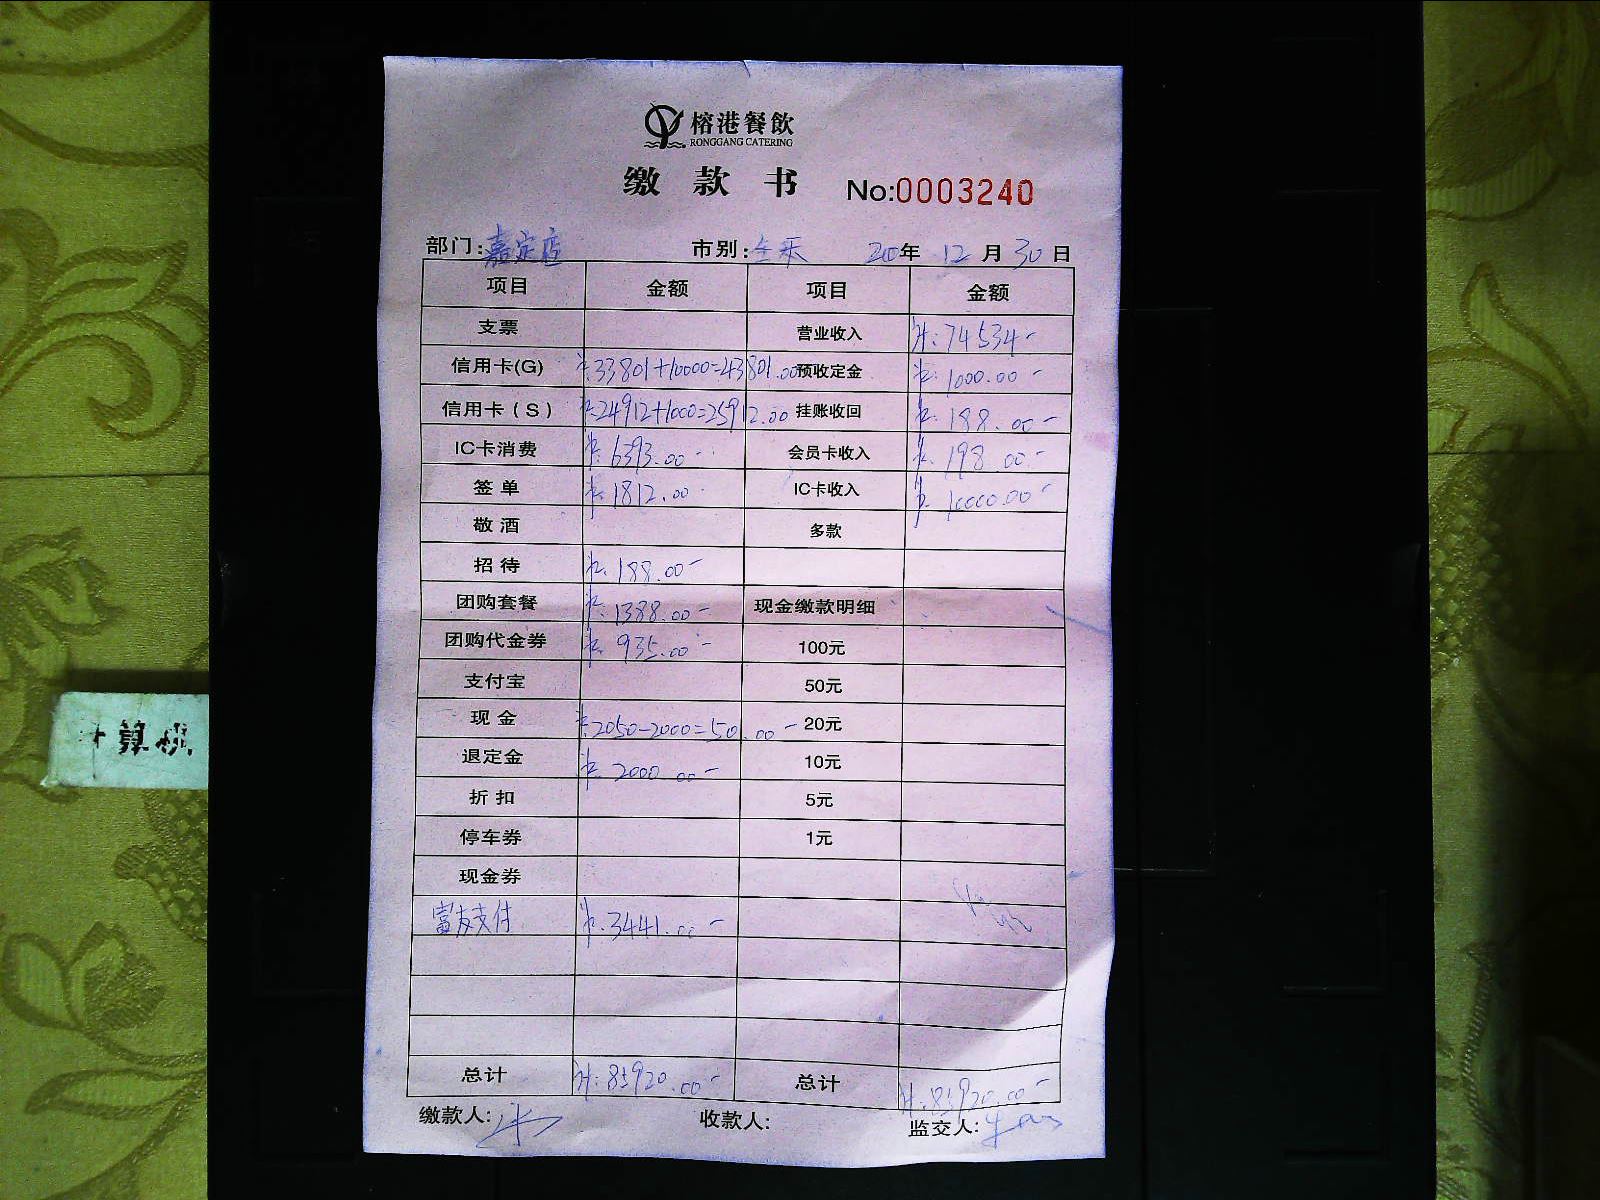 榕港餐飲
RONGGANG CATERING
缴款书 No:0003240
部门:嘉定店 市别:全天 20年 12月30日
项目 金额 项目 金额
支票 营业收入 计:74534-
信用卡(G) 33801+10000=43801.00 预收定金 1000.00-
信用卡(S) 24912+1000=25912.00 挂账收回 188.00-
IC卡消费 6393.00- 会员卡收入 198.00-
签单 1812.00 IC卡收入 10000.00-
敬酒 多款
招待 188.00-
团购套餐 1388.00- 现金缴款明细
团购代金券 935.00- 100元
支付宝 50元
现金 2050-2000=50.00- 20元
退定金 2000.00- 10元
折扣 5元
停车券 1元
现金券
富友支付 3441.00-
总计 计:85920.00- 总计 计:85920.00-
缴款人: 收款人: 监交人:
计算机